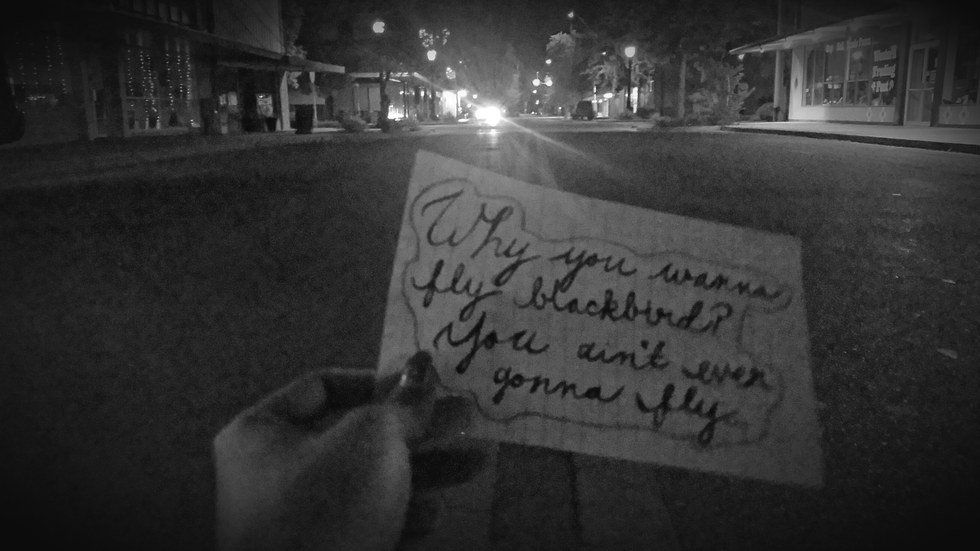 Why you wanna
fly blackbird?
You ain't even
gonna fly